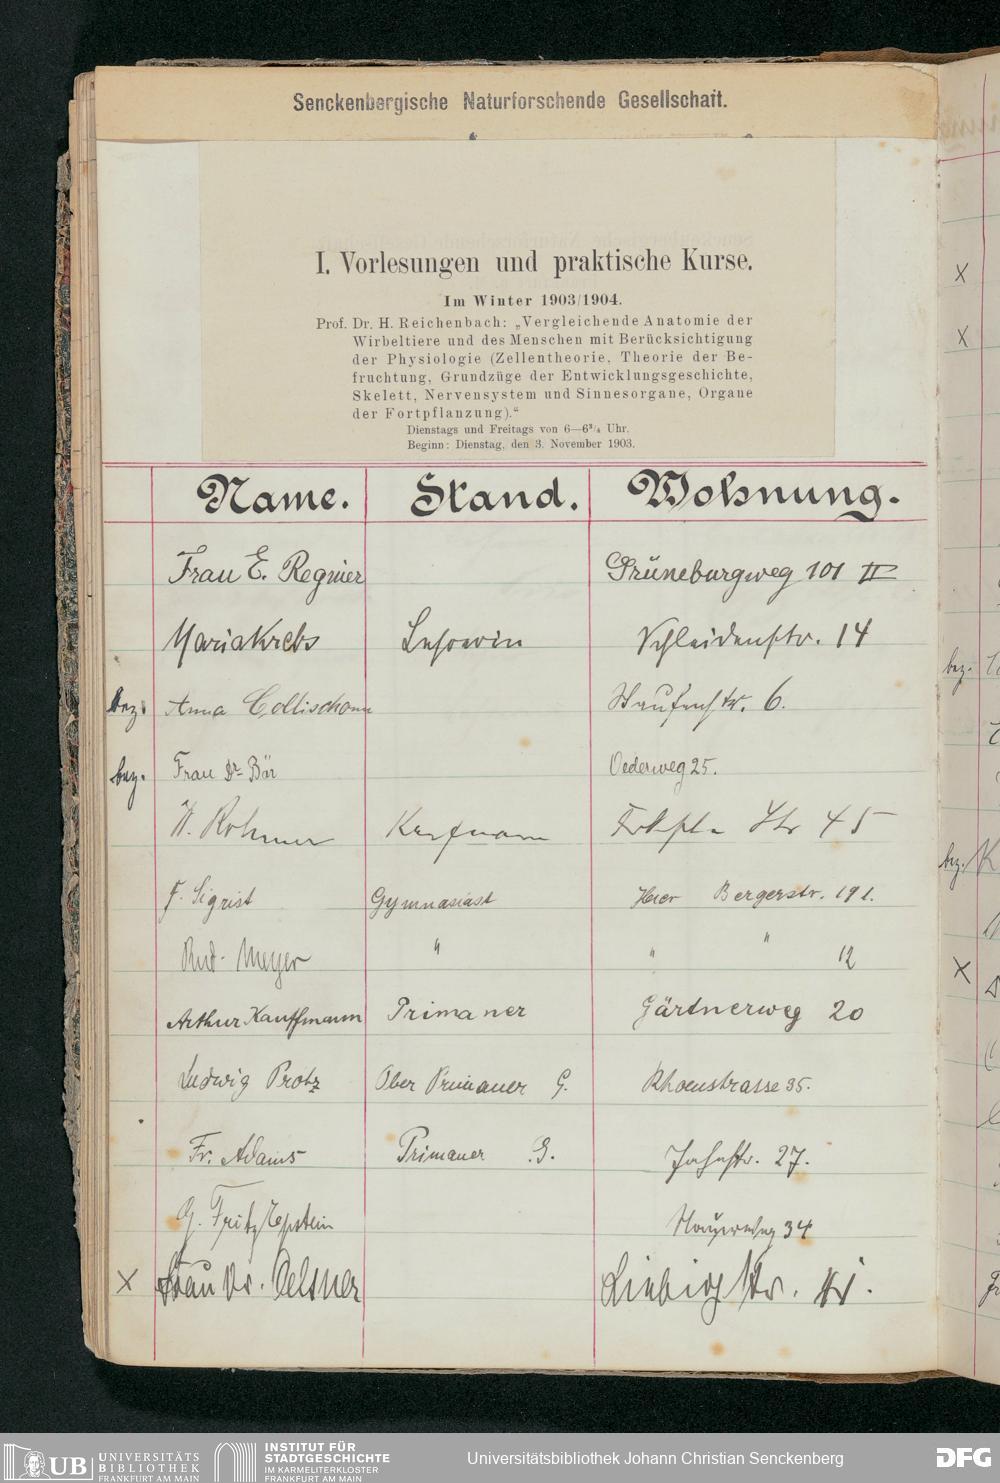 Senckenbergische Naturforschende Gesellschaft.
I. Vorlesungen und praktische Kurse.
Im Winter 1903/1904.
Prof. Dr. H. Reichenbach: „Vergleichende Anatomie der
Wirbeltiere und des Menschen mit Berücksichtigung
der Physiologie (Zellentheorie, Theorie der Be-
fruchtung, Grundzüge der Entwicklungsgeschichte,
Skelett, Nervensystem und Sinnesorgane, Organe
der Fortpflanzung).“
Dienstags und Freitags von 6—6¾ Uhr.
Beginn: Dienstag, den 3. November 1903.
Name. Stand. Wohnung.
Frau E. Regnier Grüneburgweg 101 II
Maria Krebs Lehrerin Schleidenstr. 14
bez. Anna Collischonn Staufenstr. 6.
bez. Frau Dr Bär Oederweg 25.
W. Rohmer Kaufmann Str 45
F. Sigrist Gymnasiast Hier Bergerstr. 191.
Rud. Meyer " " " 12
Arthur Kauffmann Primaner Gärtnerweg 20
Ludwig Protz Ober Primaner G. Rhoenstrasse 35.
Fr. Adams Primaner G. Jahnstr. 27.
G. Fritz Epstein 34
x Frau Dr. Oelsner Liebigstr.
x
x
bez.
bez. K
x
UB UNIVERSITÄTS
BIBLIOTHEK
FRANKFURT AM MAIN
INSTITUT FÜR
STADTGESCHICHTE
IM KARMELITERKLOSTER
FRANKFURT AM MAIN
Universitätsbibliothek Johann Christian Senckenberg
DFG